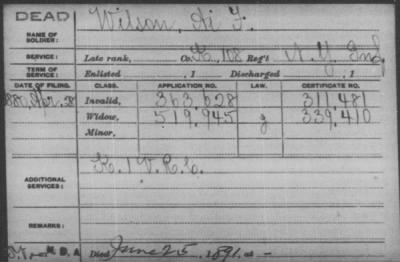 DEAD
NAME OF SOLDIER: Wilson, Hi F.
SERVICE: Late rank, Co. K, 108 Reg't N.Y. Inf
TERM OF SERVICE: Enlisted , 1 Discharged , 1
DATE OF FILING. CLASS. APPLICATION NO. LAW. CERTIFICATE NO.
1880, Apr. 28 Invalid, 363,628 311,481
Widow, 519,945 g 339,410
Minor,
ADDITIONAL SERVICES: K. 1 V.R.C.
REMARKS:
Died June 25, 1891, at -